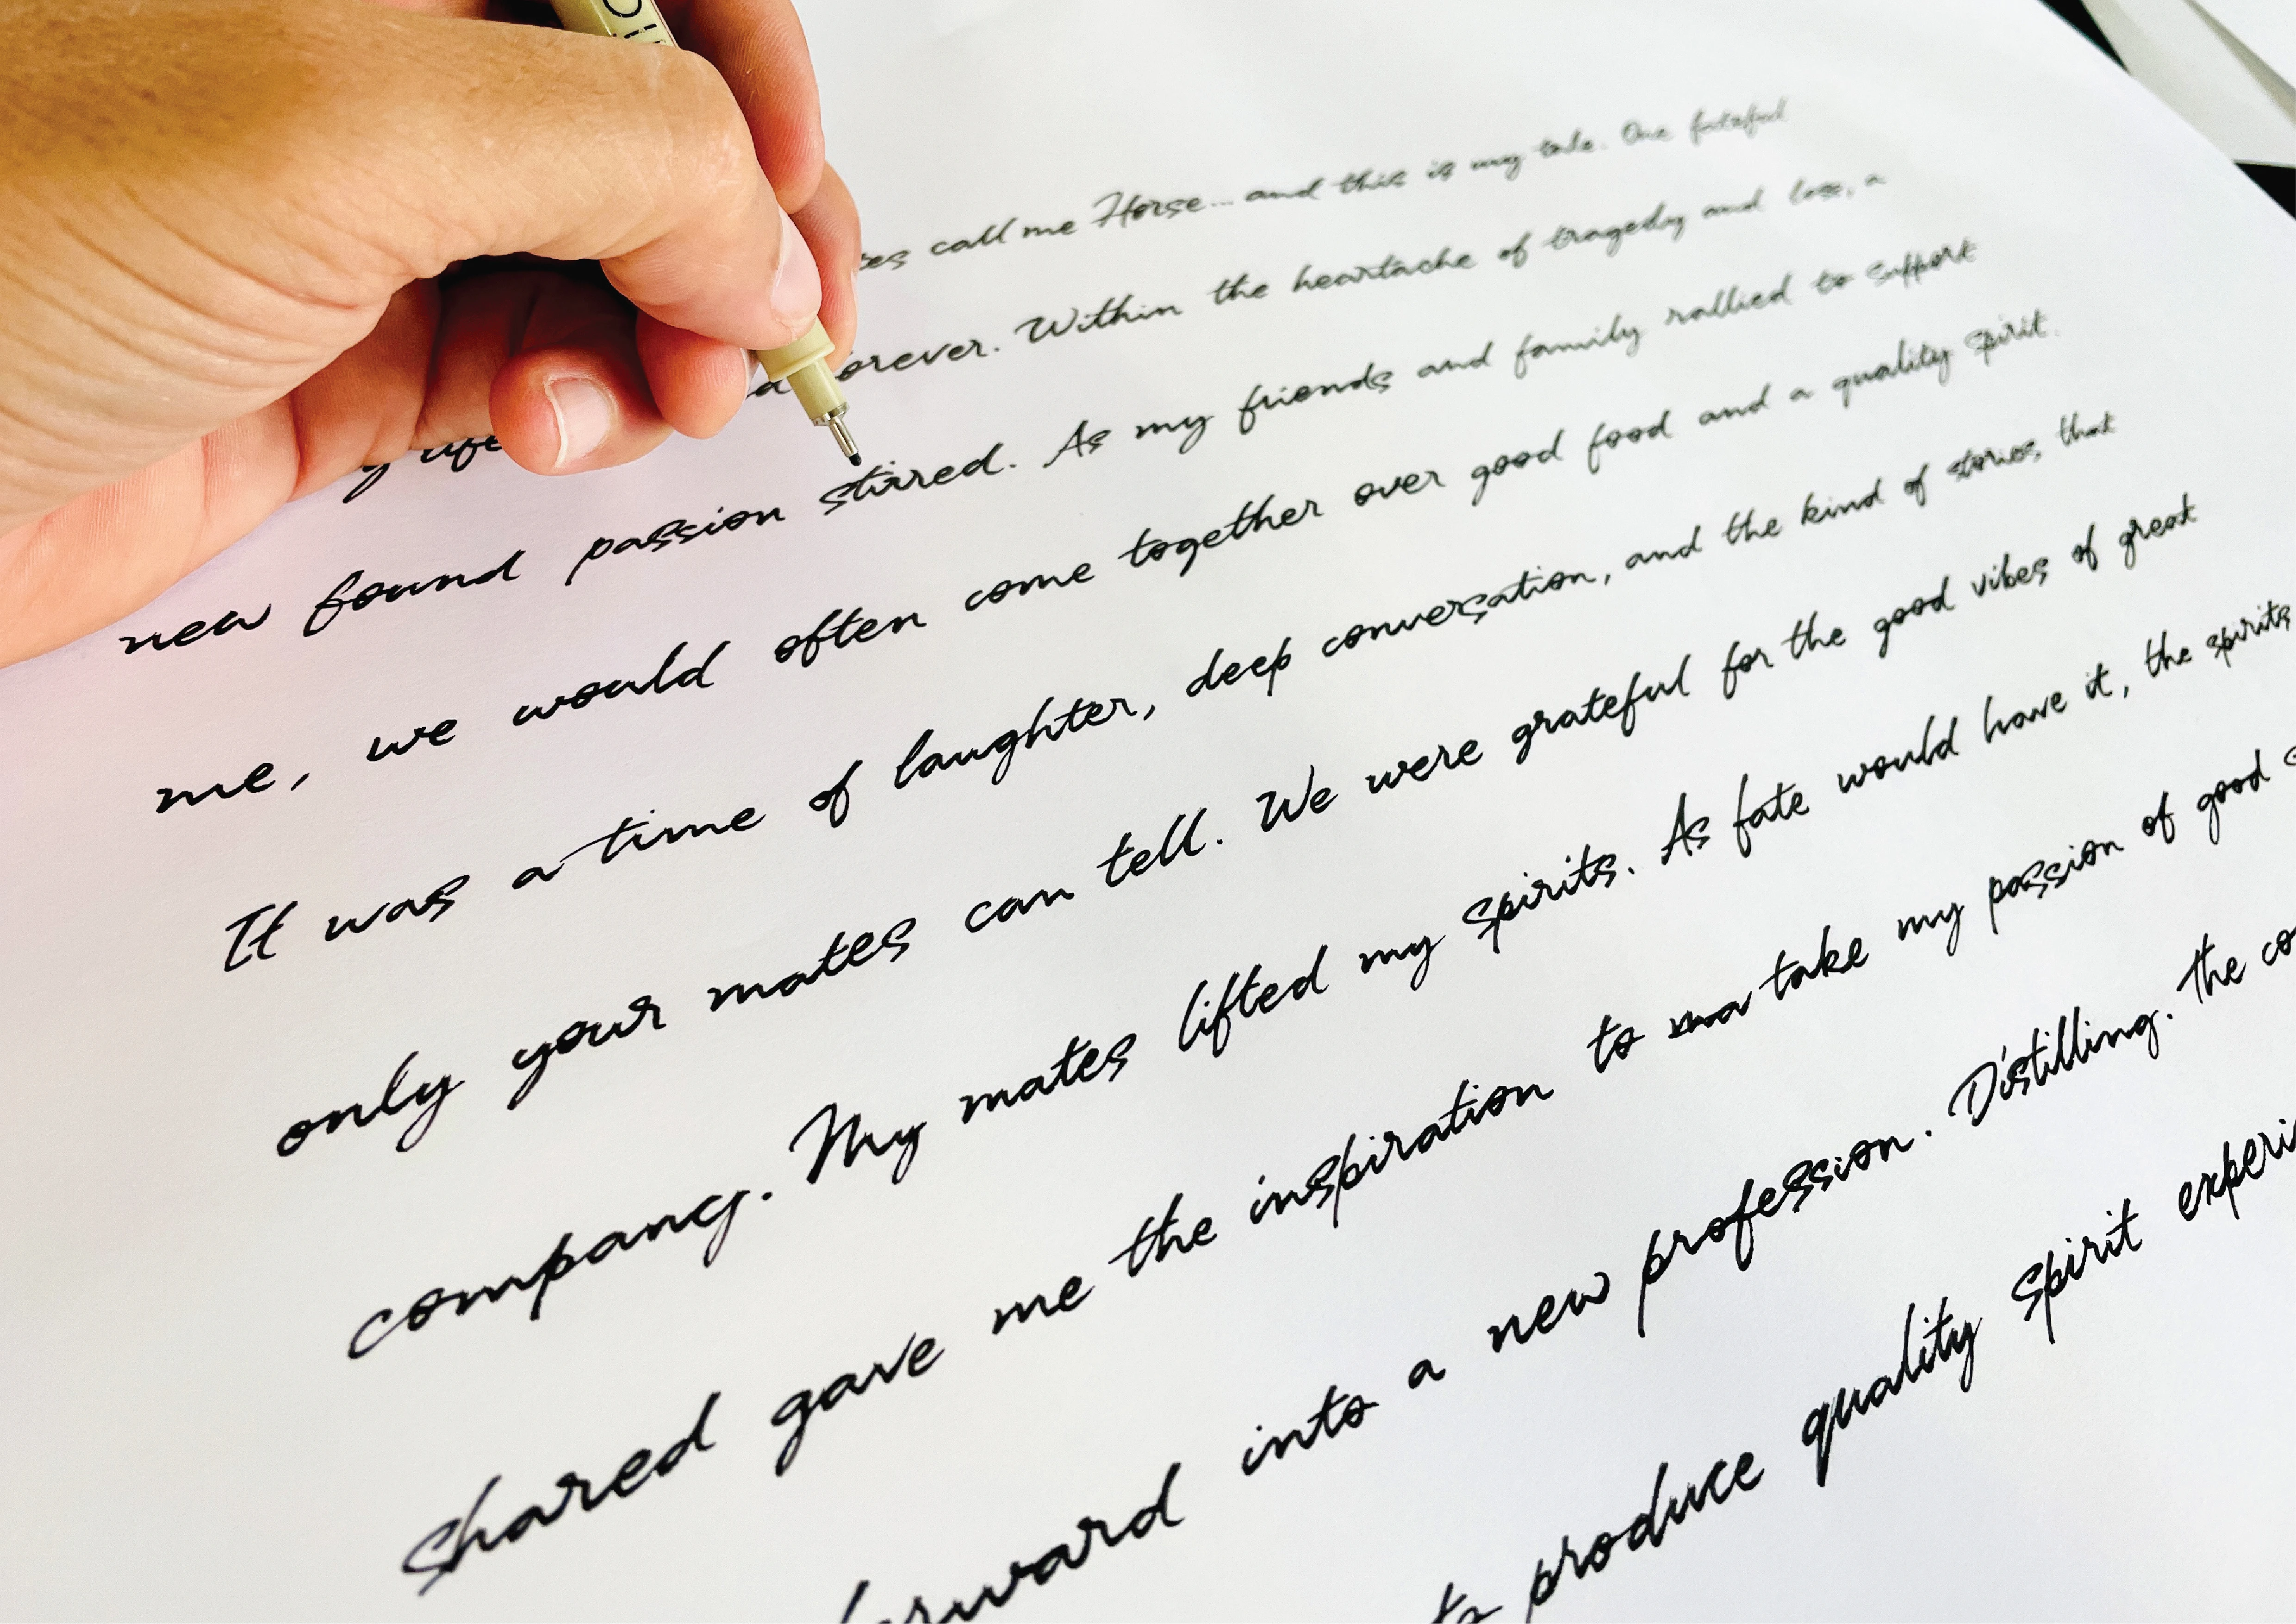 call me Horse... and this is my tale. One fateful
life forever. Within the heartache of tragedy and loss, a
new found passion stirred. As my friends and family rallied to support
me, we would often come together over good food and a quality spirit.
It was a time of laughter, deep conversation, and the kind of stories, that
only your mates can tell. We were grateful for the good vibes of great
company. My mates lifted my spirits. As fate would have it, the spirits
shared gave me the inspiration to take my passion of good
into a new profession. Distilling. The
produce quality spirit